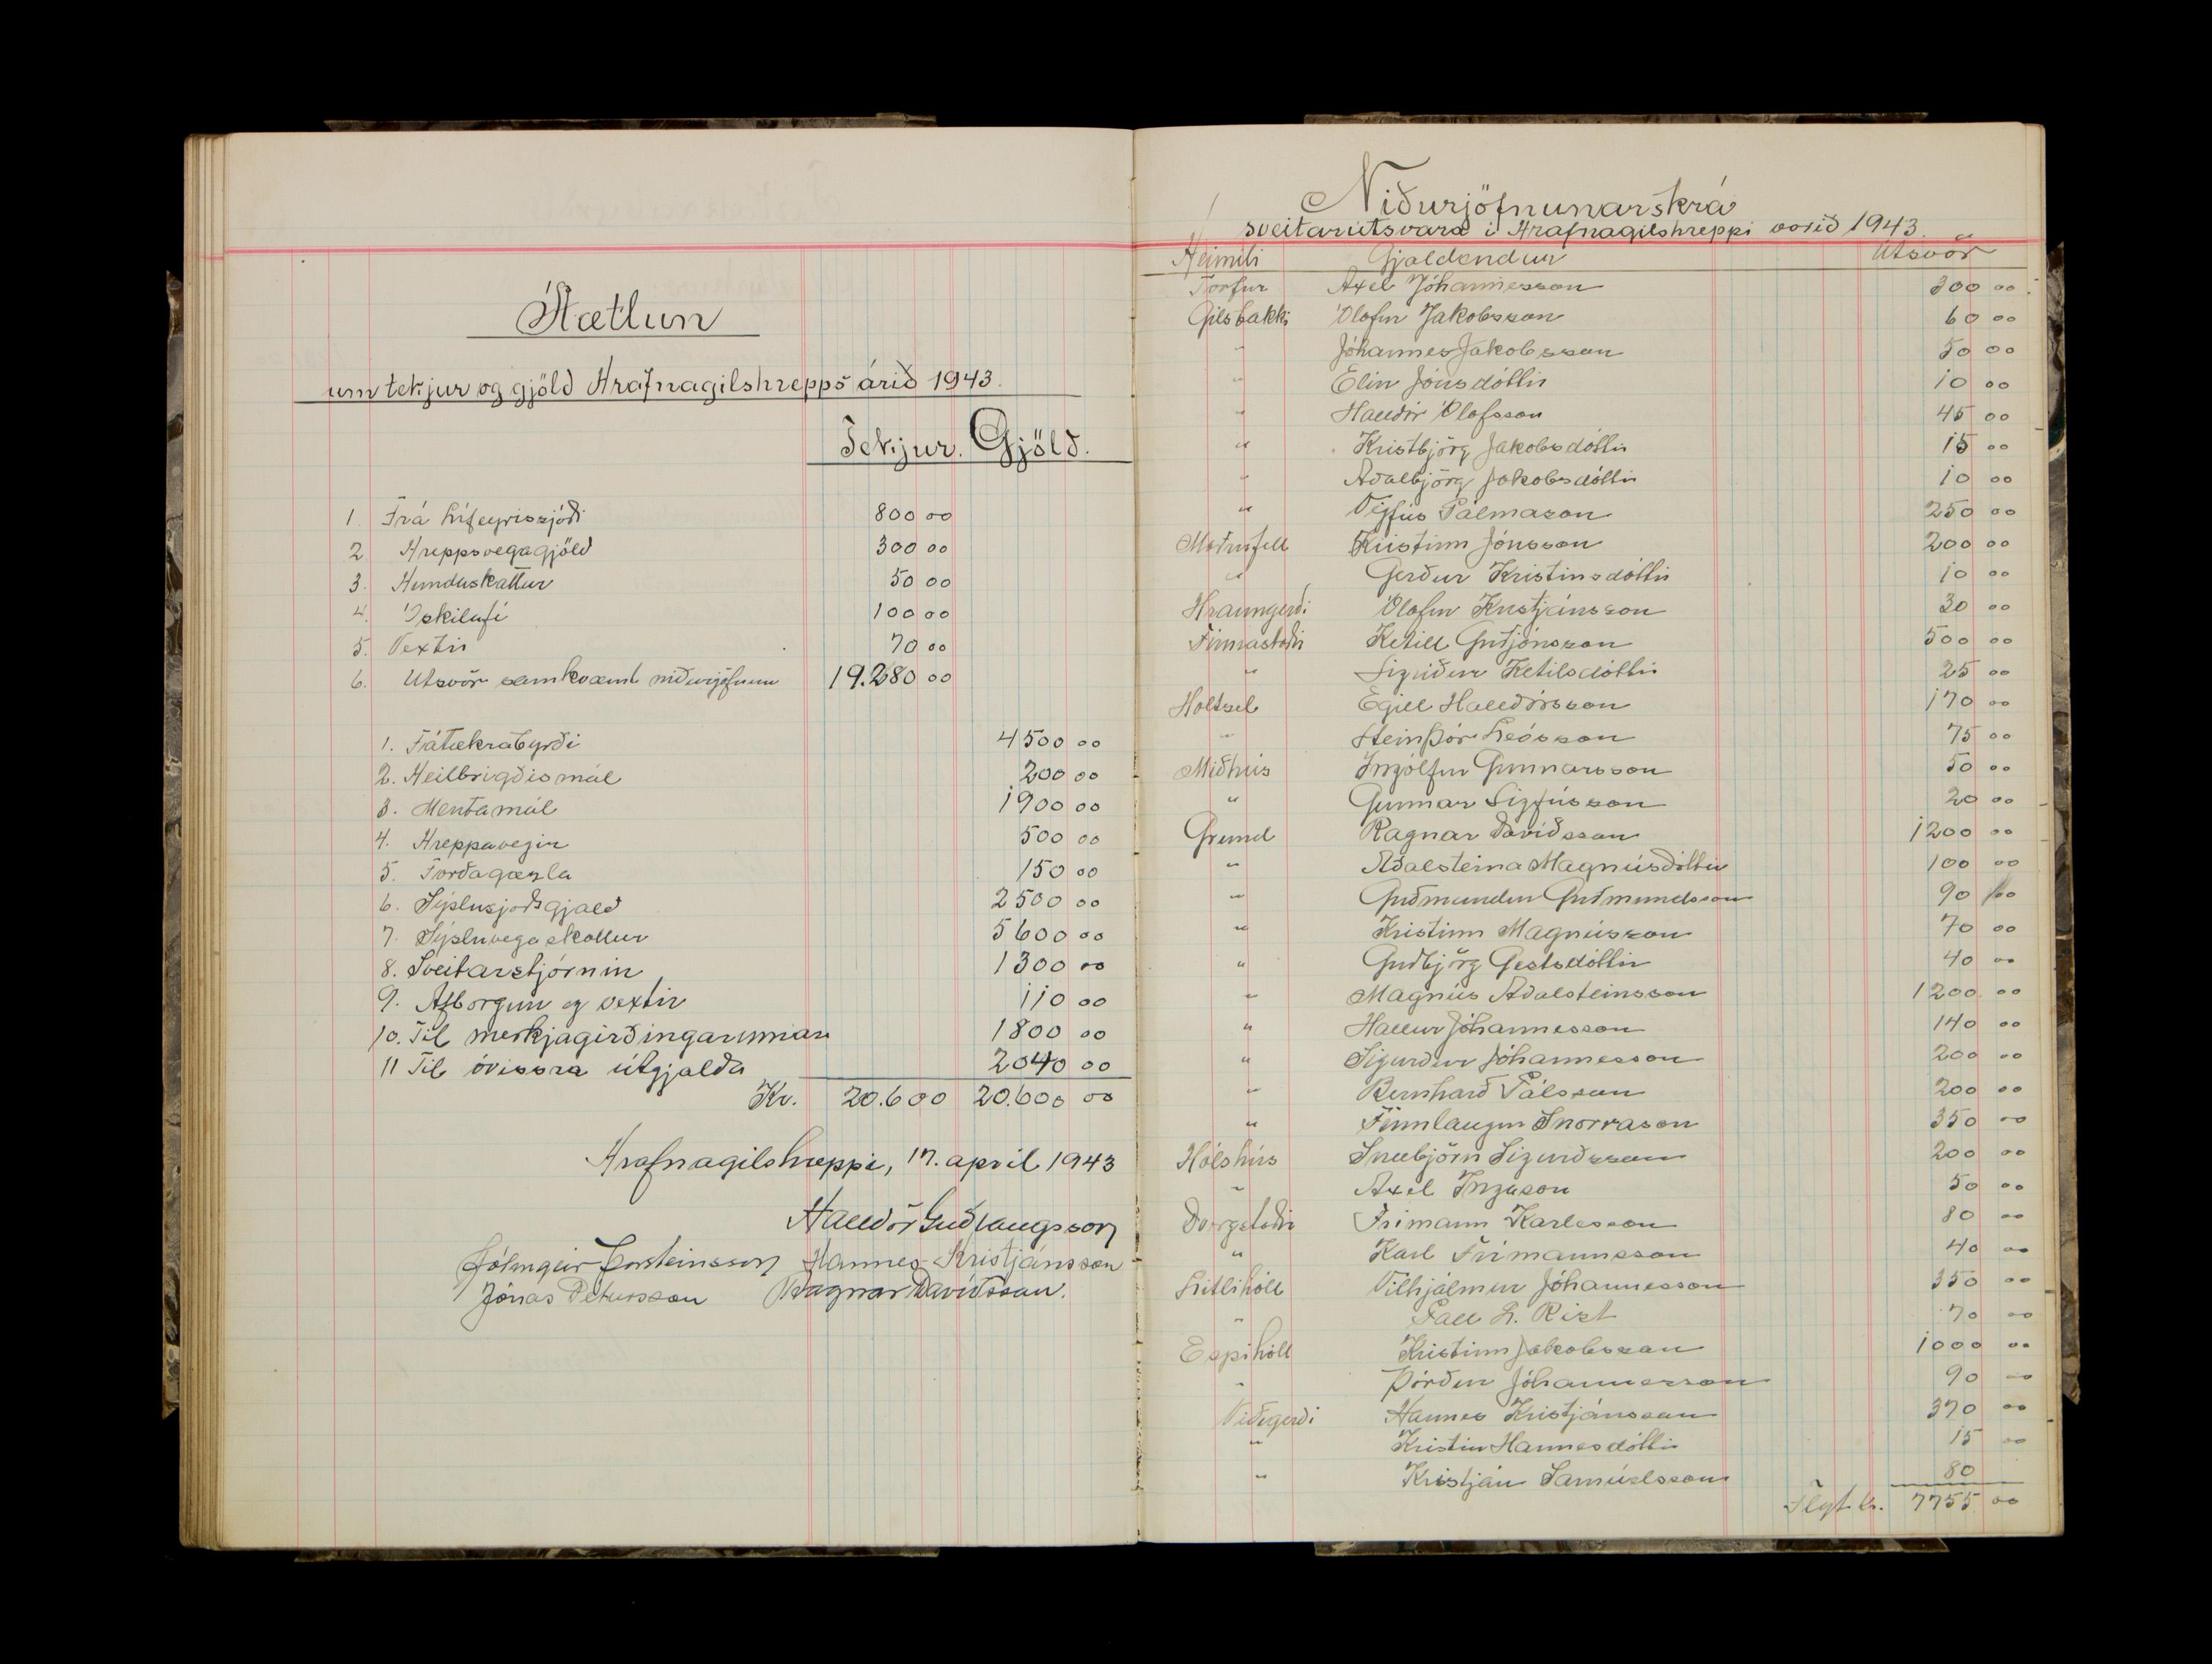 Áætlun
um tekjur og gjöld Hrafnagilshrepps árið 1943.
Tekjur. Gjöld.
1. Frá Lífeyrissjóði 800 00
2 Hreppsvegagjöld 300 00
3. Hundaskattur 50 00
4. Óskilafé 100 00
5. Vextir 70 00
6. Utsvör samkvæmt niðurjöfnun 19.280 00
1. Fátækrabyrði 4500 00
2. Heilbrigðismál 200 00
3. Mentamál 1900 00
4. Hreppavegir 500 00
5. Forðagæzla 150 00
6. Sýslusjóðsgjald 2500 00
7. Sýsluvegaskattur 5600 00
8. Sveitarstjórnin 1300 00
9. Afborgun og vextir 110 00
10. Til merkjagirðingarinnar 1800 00
11 Til óvissra útgjalda 2040 00
Kr. 20.600 20.600 00
Hrafnagilshreppi, 17. apríl 1943
Halldór Guðlaugsson
Hólmgeir Þorsteinsson Hannes Kristjánsson
Jónas Pétursson Ragnar Davíðsson.
Niðurjöfnunarskrá
sveitarútsvara í Hrafnagilshreppi vorið 1943.
Heimili Gjaldendur Útsvör
Torfur Axel Jóhannesson 300 00
Gilsbakki Ólafur Jakobsson 60 00
" Jóhannes Jakobsson 50 00
" Elín Jónsdóttir 10 00
" Halldór Ólafsson 45 00
" Kristbjörg Jakobsdóttir 15 00
" Aðalbjörg Jakobsdóttir 10 00
" Vigfús Pálmason 250 00
Möðrufell Kristinn Jónsson 200 00
" Gerður Kristinsdóttir 10 00
Hraungerði Ólafur Kristjánsson 30 00
Finnastaðir Ketill Guðjónsson 500 00
" Sigríður Ketilsdóttir 25 00
Holtsel Egill Halldórsson 170 00
" Steinþór Leósson 75 00
Miðhús Ingólfur Gunnarsson 50 00
" Gunnar Sigfússon 20 00
Grund Ragnar Davíðsson 1200 00
" Aðalsteina Magnúsdóttir 100 00
" Guðmundur Guðmundsson 90 00
" Kristinn Magnússon 70 00
" Guðbjörg Gestsdóttir 40 00
" Magnús Aðalsteinsson 1200 00
" Hallur Jóhannesson 140 00
" Sigurður Jóhannesson 200 00
" Bernharð Pálsson 200 00
" Finnlaugur Snorrason 350 00
Hólshús Snæbjörn Sigurðsson 200 00
" Axel Ingason 50 00
Dvergstaðir Frímann Karlesson 80 00
" Karl Frímannsson 40 00
Litlihóll Vilhjálmur Jóhannesson 350 00
" Páll L. Rist 70 00
Espihóll Kristinn Jakobsson 1000 00
" Þórður Jóhannesson 90 00
Víðigerði Hannes Kristjánsson 370 00
" Kristín Hannesdóttir 15 00
" Kristján Samúelsson 80
Flyt kr. 7755 00